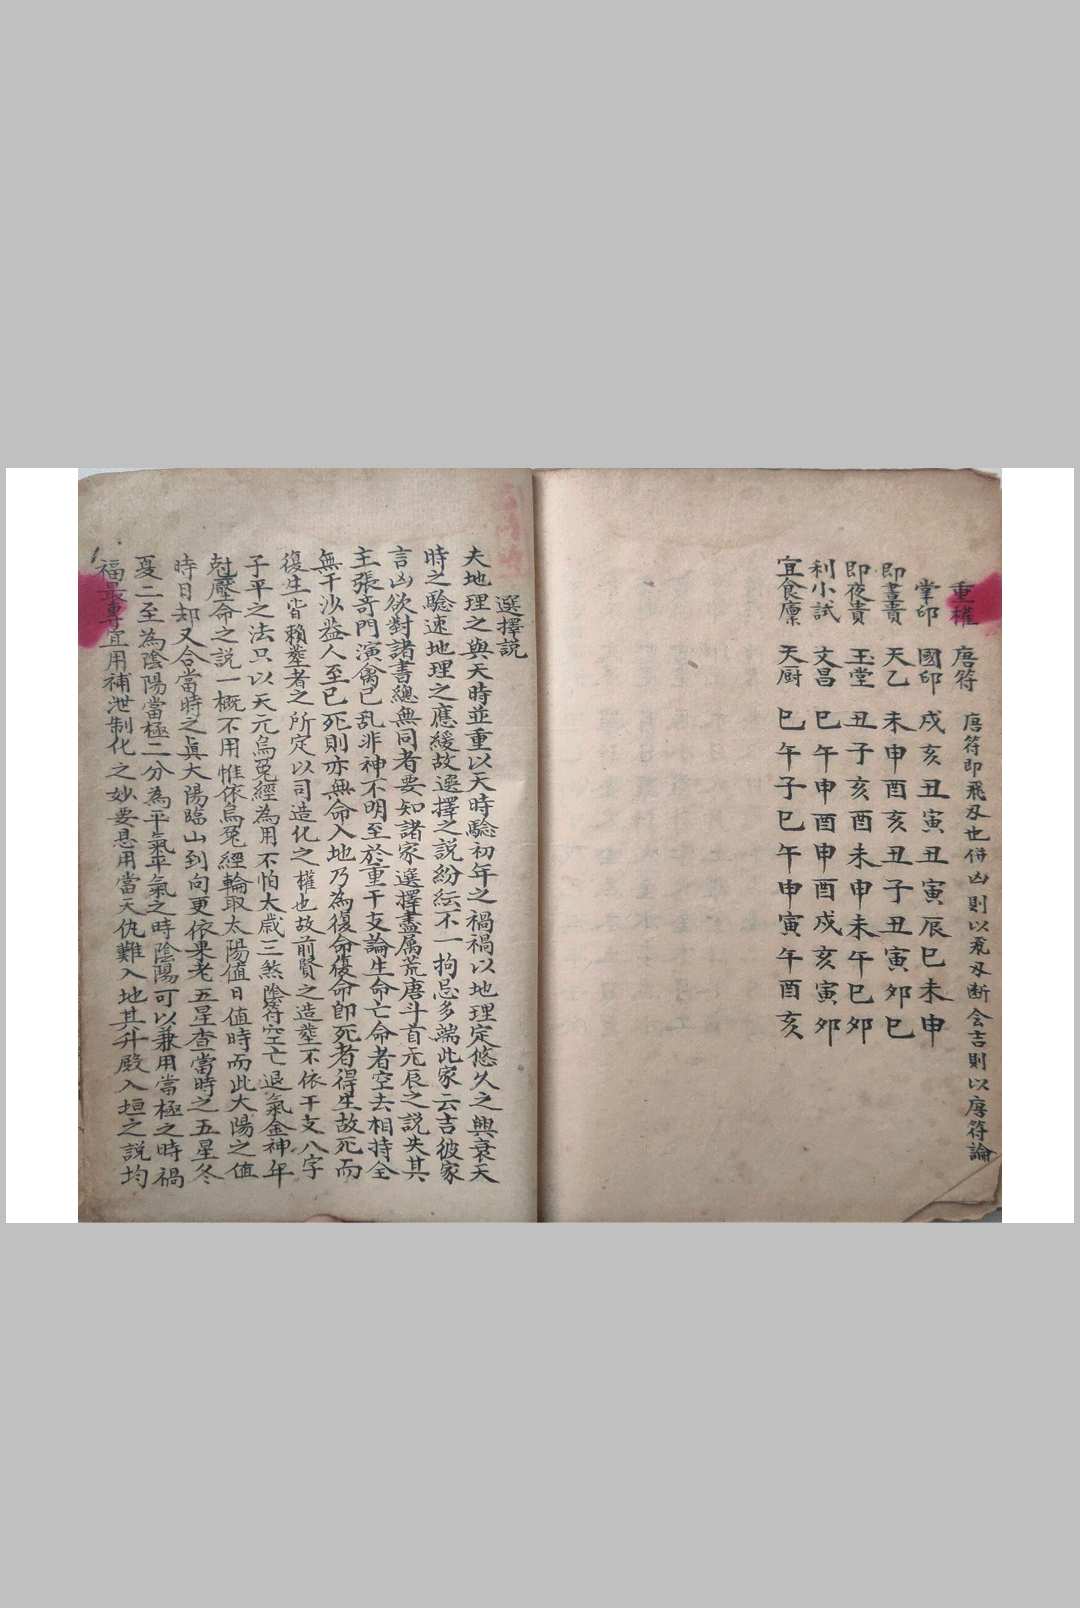 重權 唐符 唐符即飛刃也併凶則以飛刃断会吉則以唐符論
掌印 國印 戌亥丑寅丑寅辰巳未申
即晝貴 天乙 未申酉亥丑子丑寅夘巳
即夜貴 玉堂 丑子亥酉未申未午巳夘
利小試 文昌 巳午申酉申酉戌亥寅夘
宜食廩 天厨 巳午子巳午申寅午酉亥
選擇説
夫地理之與天時並重以天時驗初年之禍禍以地理定悠久之興衰天
時之驗速地理之應緩故選擇之説紛紜不一拘忌多端此家云吉彼家
言凶欲對諸書總無同者要知諸家選擇盡属荒唐斗首元辰之説失其
主張竒門演禽已乱非神不明至於重干支論生命亡命者空去相持全
無干涉葢人至已死則亦無命入地乃為復命復命即死者得生故死而
復生皆賴塟者之所定以司造化之權也故前賢之造塟不依干支八字
子平之法只以天元烏兎經為用不怕太歲三煞陰符空亡退氣金神年
尅壓命之説一概不用惟依烏兎經輪取太陽值日值時而此大陽之值
時日却又合當時之真大陽臨山到向更依果老五星查當時之五星冬
夏二至為陰陽當極二分為平氣平氣之時陰陽可以兼用當極之時禍
福最專宜用補泄制化之妙要恳用當天仇難入地其升殿入垣之説均